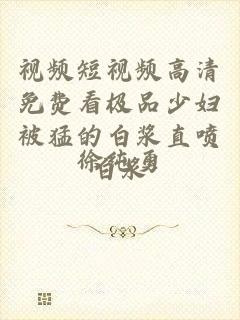 视频短视频高清
免费看极品少妇
被猛的白浆直喷
白浆
徐纯勇